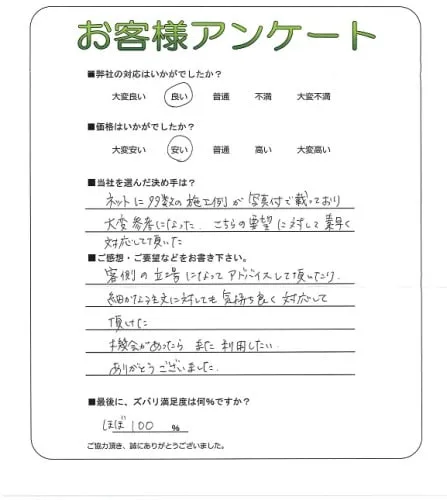 お客様アンケート
■弊社の対応はいかがでしたか?
大変良い 良い 普通 不満 大変不満
■価格はいかがでしたか?
大変安い 安い 普通 高い 大変高い
■当社を選んだ決め手は?
ネットに多数の施工例が写真付で載っており
大変参考になった。こちらの要望に対して素早く
対応して頂いた
■ご感想・ご要望などをお書き下さい。
客側の立場になってアドバイスして頂いたり、
細かなる注文に対しても気持ち良く対応して
頂けた
機会があったらまた利用したい。
ありがとうございました。
■最後に、ズバリ満足度は何%ですか?
ほぼ100 %
ご協力頂き、誠にありがとうございました。